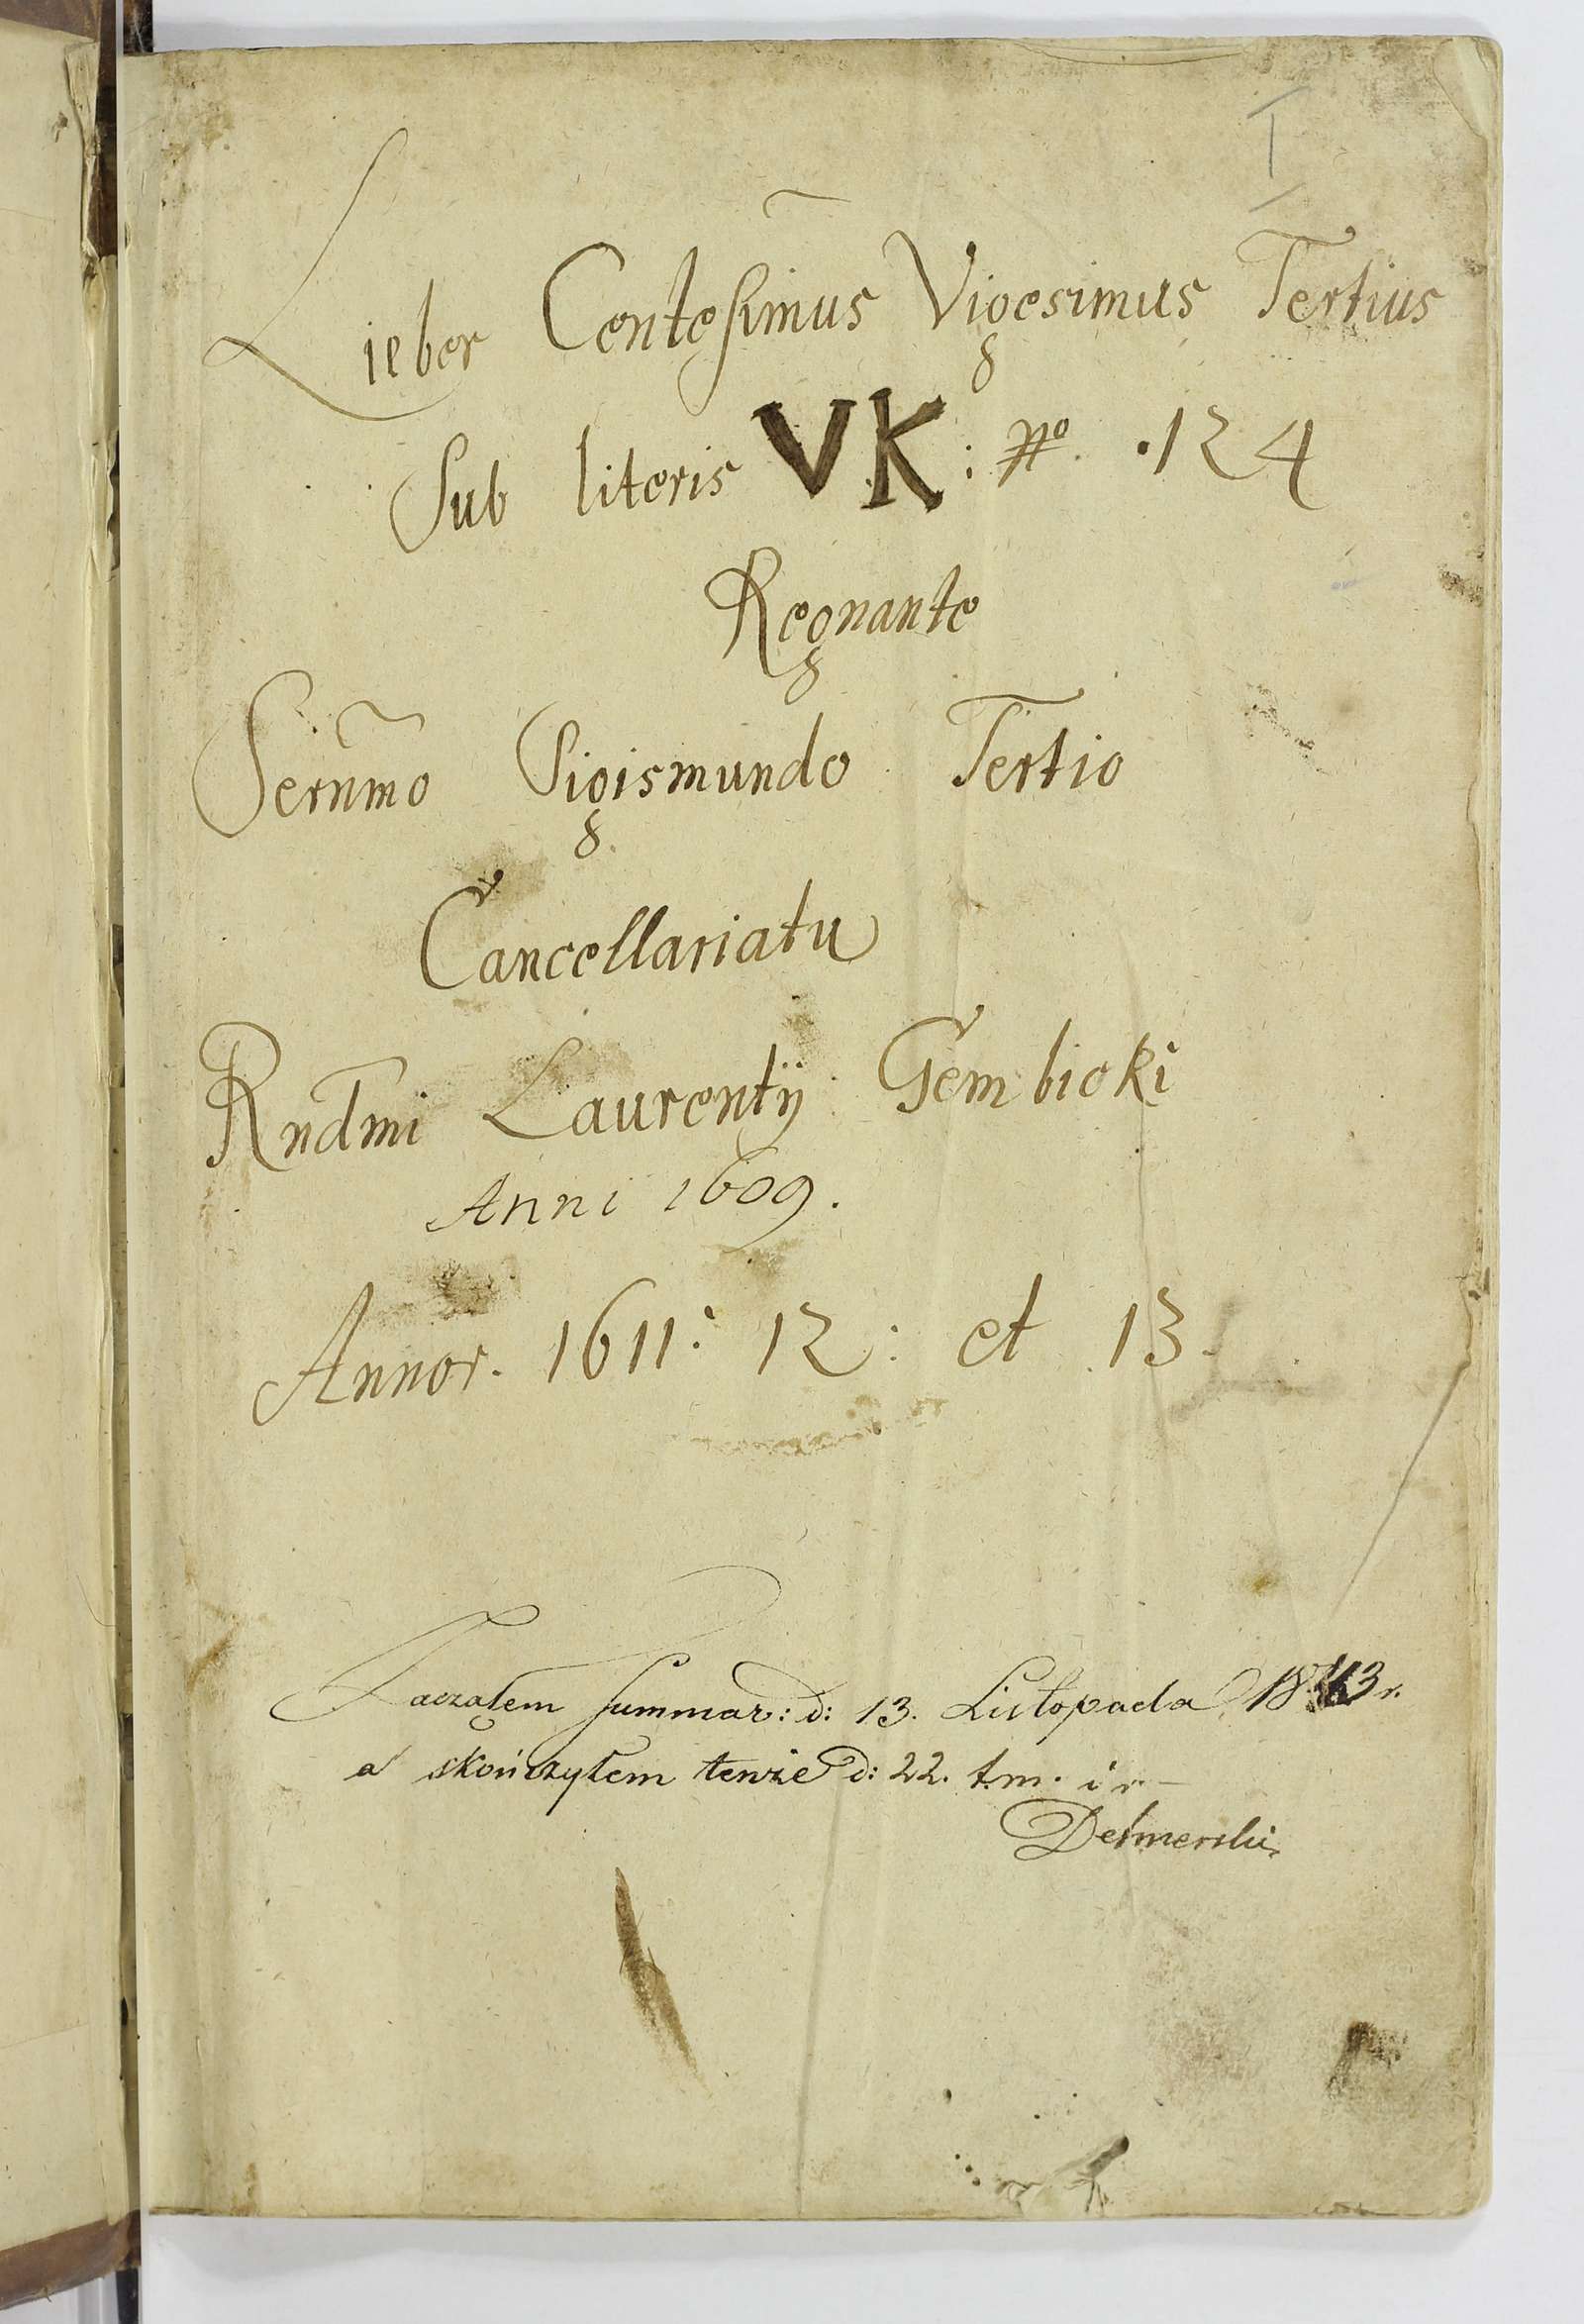 I
Lieber Centesimus Vigesimus Tertius
Sub literis VK: No. 124
Regnante
Sernmo Sigismundo Tertio
Cancellariatu
Rndmi Laurentij Gembicki
Anni 1609.
Annor. 1611: 12: et 13.
Zaczałem summar: d: 13. Listopada 1843 r.
a skończyłem tenże d: 22. t.m. i r